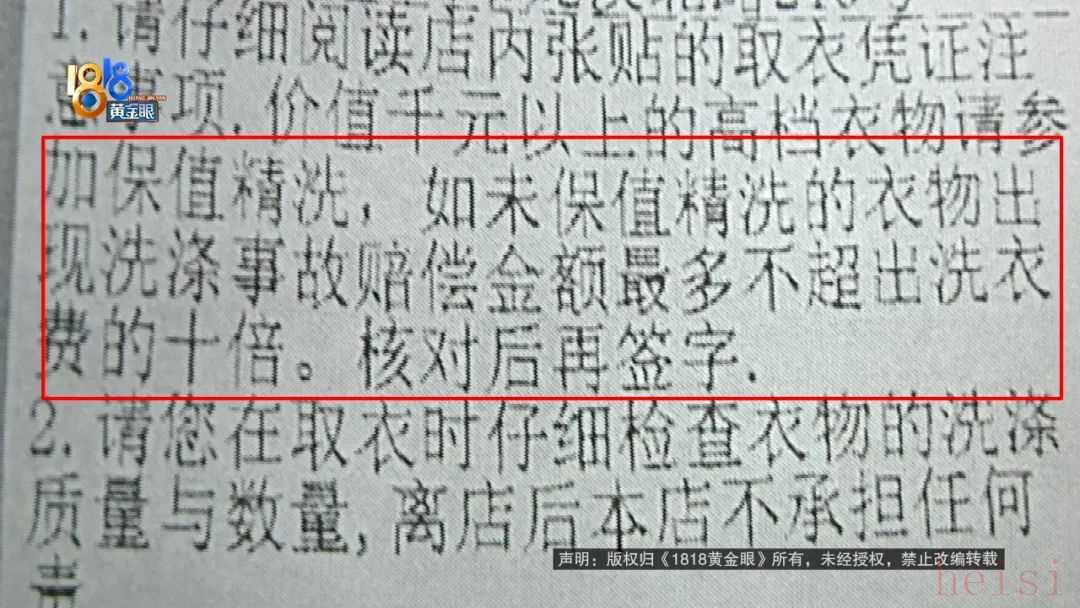 1.请仔细阅读店内张贴的取衣凭证注
意事项.价值千元以上的高档衣物请参
加保值精洗，如未保值精洗的衣物出
现洗涤事故赔偿金额最多不超出洗衣
费的十倍。核对后再签字.
2.请您在取衣时仔细检查衣物的洗涤
质量与数量,离店后本店不承担任何
责
1818
黄金眼
声明：版权归《1818黄金眼》所有，未经授权，禁止改编转载
heisi